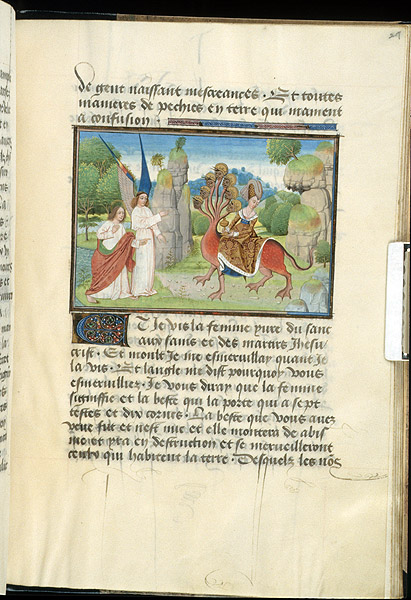 de gent naissant mescreances . Et toutes
manieres de pechies en terre qui mainent
a confusion
Et Je vis la femme yure du sanc
aux sains et des martirs Ihesu
crist . Et moult Je me esmerueillay quant Je
la vis . Et langle me dist pourquoy vous
esmerueilliez . Je vous diray que la femme
signiffie et la beste qui la porte qui a sept
testes et dix cornes . La beste que vous auez
veue fut et nest mie et elle montera de abis
me et yra en destruction et se merueilleront
ceulx qui habitent la terre . Desquelz les nōs